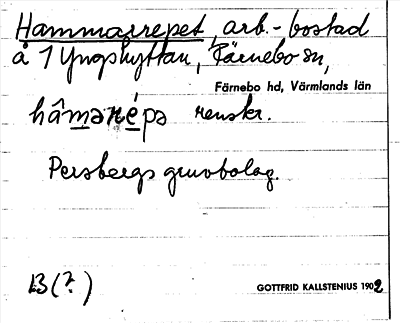 Hammarrepet, arb.-bostad
å 1 Yngshyttan, Färnebo sn,
Färnebo hd, Värmlands län
renskr.
Persbergs gruvbolag.
B (?)
GOTTFRID KALLSTENIUS 1902